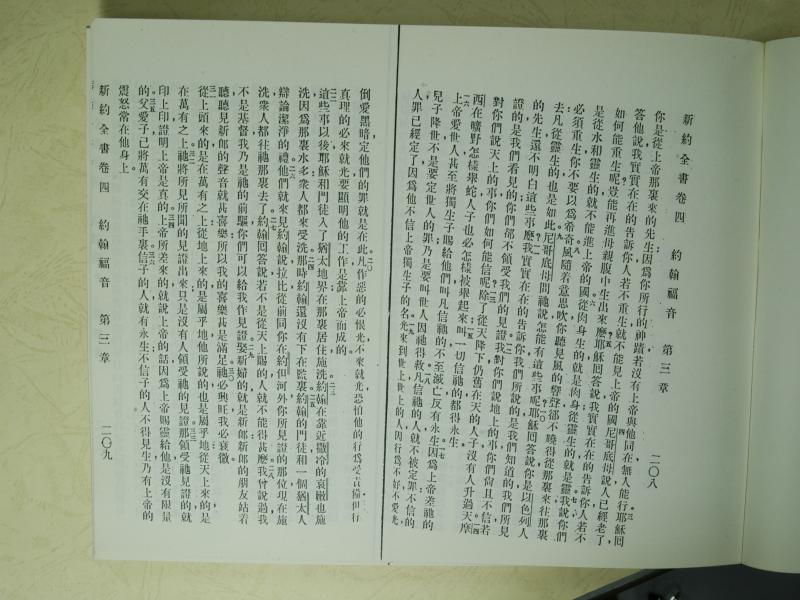 新約全書卷四　約翰福音　第三章　二〇八
你是從上帝那裏來的先生因爲你所行的神蹟若沒有上帝與他同在無人能行耶穌回
答他說我實實在在的告訴你人若不重生就不能見上帝的國尼哥底母說人已經老了
如何能重生呢豈能再進母親腹中生出來麼耶穌回答說我實實在在的告訴你人若不
是從水和靈生的就不能進上帝的國從肉身生的就是肉身從靈生的就是靈我說你們
必須重生你不要以爲希奇風隨着意思吹你聽見風的響聲卻不曉得從那裏來往那裏
去凡從靈生的也是如此尼哥底母問祂說怎能有這些事呢耶穌回答說你是以色列人
的先生還不明白這些事麼我實實在在的告訴你我們所說的是我們知道的我們所見
證的是我們看見的你們都不領受我們的見證我對你們說地上的事你們尙且不信若
對你們說天上的事你們如何能信呢除了從天降下仍舊在天的人子沒有人升過天摩
西在曠野怎樣舉蛇人子也必怎樣被舉起來叫一切信祂的都得永生
上帝愛世人甚至將獨生子賜給他們叫凡信祂的不至滅亡反有永生因爲上帝差祂的
兒子降世不是要定世人的罪乃是要叫世人因祂得救凡信祂的人就不被定罪不信的
人罪已經定了因爲他不信上帝獨生子的名光來到世上世上的人因行爲不好不愛光
倒愛黑暗定他們的罪就是在此凡作惡的必恨光不來就光恐怕他的行爲受責備但行
真理的必來就光要顯明他的工作是靠上帝而成的
這些事以後耶穌和門徒入了猶太地界在那裏居住施洗約翰在靠近撒冷的哀嫩也施
洗因爲那裏水多衆人都來受洗那時約翰還沒有下在監裏約翰的門徒和一個猶太人
辯論潔淨的禮他們就來見約翰說拉比從前同你在約但河外你所見證的那位現在施
洗衆人都往祂那裏去了約翰回答說若不是從天上賜的人就不能得甚麼我曾說過我
不是基督我乃是祂的前驅你們可以給我作見證娶新婦的就是新郎新郎的朋友站着
聽聽見新郎的聲音就甚喜樂所以我的喜樂甚是滿足祂必興旺我必衰微
從上頭來的是在萬有之上從地上來的是屬乎地他所說的也是屬乎地從天上來的是
在萬有之上祂將所見所聞的見證出來只是沒有人領受祂的見證那領受祂見證的就
印上印證明上帝是真的上帝所差來的就說上帝的話因爲上帝賜靈給他是沒有限量
的父愛子已將萬有交在祂手裏信子的人就有永生不信子的人不得見生乃有上帝的
震怒常在他身上
新約全書卷四　約翰福音　第三章　二〇九